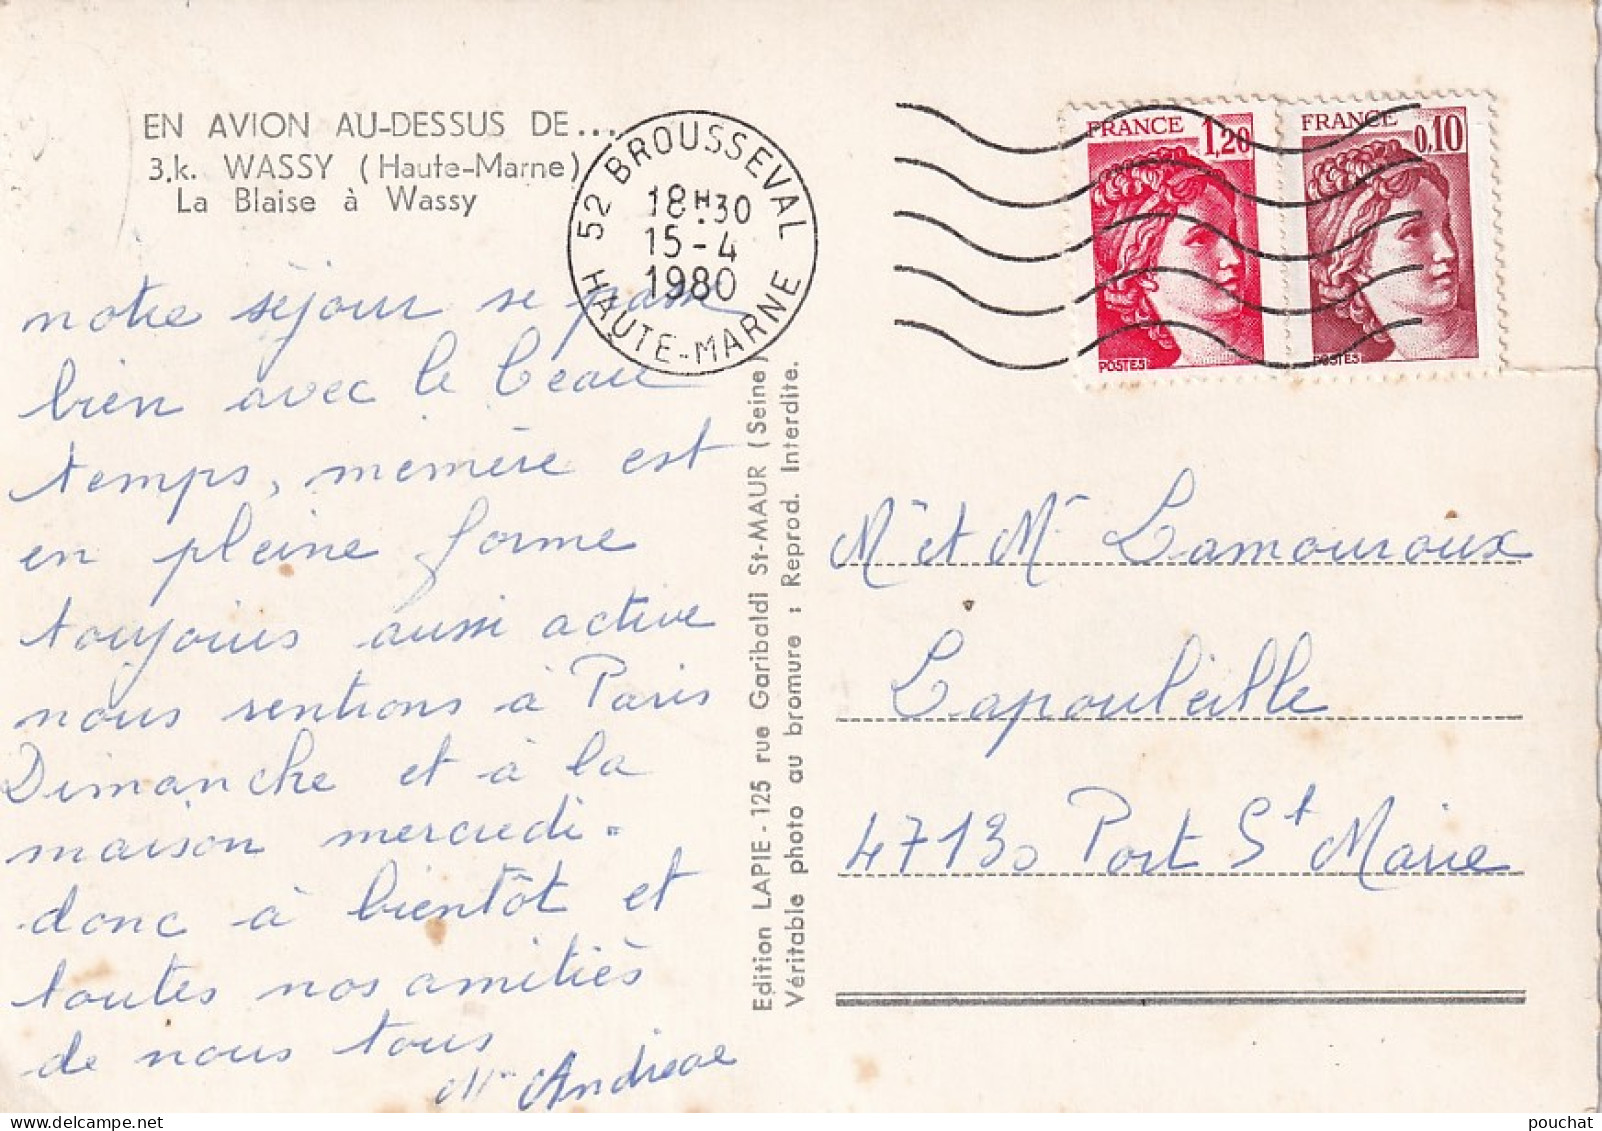 EN AVION AU-DESSUS DE...
3.k. WASSY (Haute-Marne)
La Blaise à Wassy
52 BROUSSEVAL
18H30
15-4
1980
HAUTE-MARNE
FRANCE 1,20
POSTES
FRANCE 0,10
POSTES
notre séjour se passe
bien avec le beau
temps, mémère est
en pleine forme
toujours aussi active
nous rentrons à Paris
Dimanche et à la
maison mercredi.
donc à bientôt et
toutes nos amitiés
de nous tous
Edition LAPIE - 125 rue Garibaldi St-MAUR (Seine)
Véritable photo au bromure : Reprod. Interdite.
Mr et Me Lamouroux
Lapouleille
47130 Port St Marie
pouchat